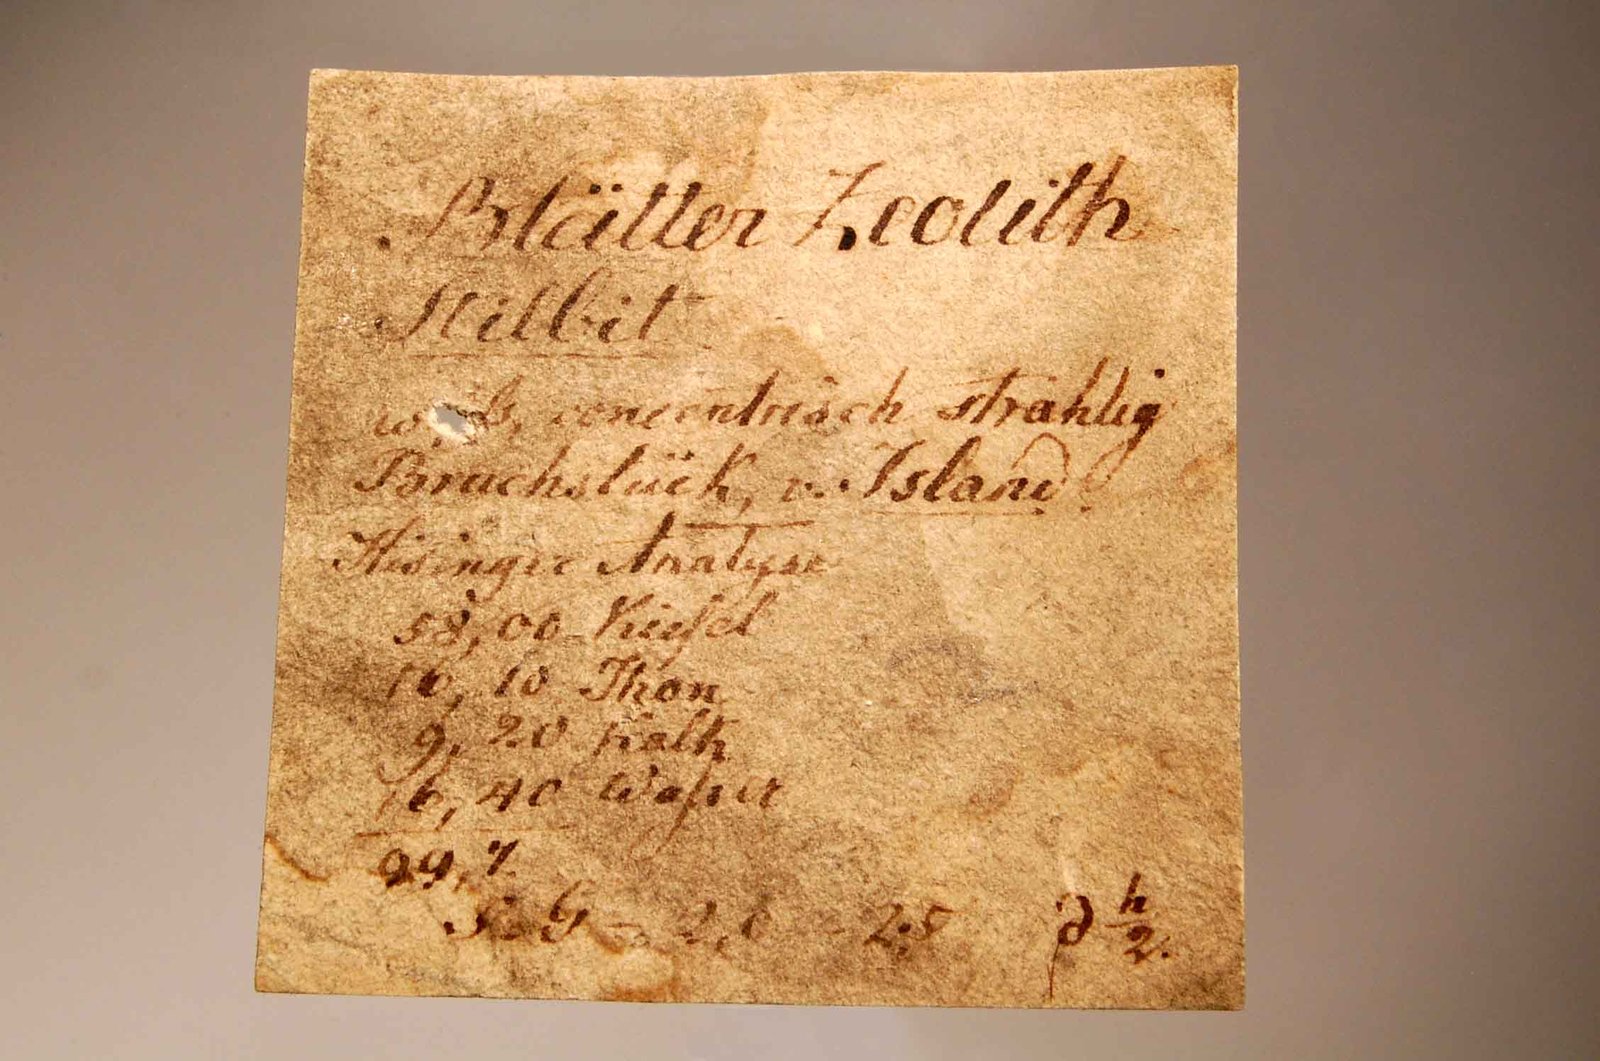 Blätter Zeolith
Stilbit
concentrisch strahlig
Bruchstück, v. Island
Hisingers Analyse
58,00 Kiesel
16,10 Thon
9,20 Kalk
16,40 Wasser
99,7
S. G. 2,5
h
2.